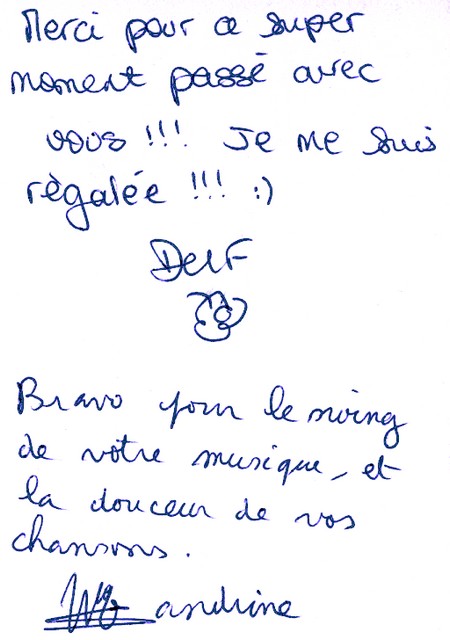 Merci pour ce super
moment passé avec
vous !!! Je me suis
régalée !!! :)
Delf
Bravo pour le swing
de votre musique, et
la douceur de vos
chansons.
andrine